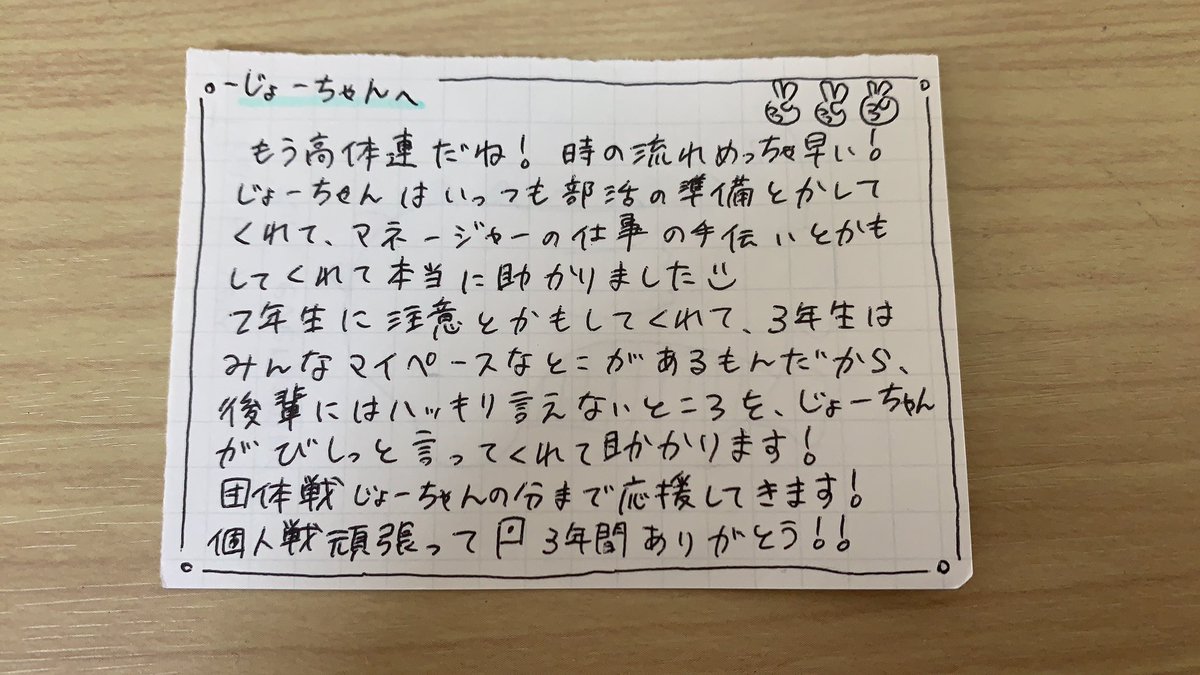 じょーちゃんへ
もう高体連だね！時の流れめっちゃ早い！
じょーちゃんはいっつも部活の準備とかして
くれて、マネージャーの仕事の手伝いとかも
してくれて本当に助かりました
2年生に注意とかもしてくれて、3年生は
みんなマイペースなとこがあるもんだから、
後輩にはハッキリ言えないところを、じょーちゃん
がびしっと言ってくれて助かかります！
団体戦じょーちゃんの分まで応援してきます！
個人戦頑張って 3年間ありがとう！！